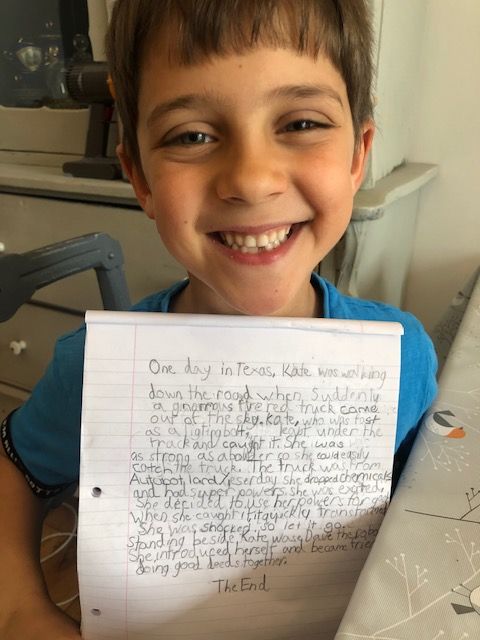 One day in Texas, Kate was walking
down the road when, Suddenly
a ginormous fire red truck came
out of the sky. Kate, who was fast
as a lightning bolt, leapt under the
truck and caught it. She was
as strong as a boulder so she could easily
catch the truck. The truck was from
Autobot land. Yeserday she dropped chemicals
and had super powers, she was excited.
She decided to use her powers for
when she caught it, it quickly transformed
She was shocked. So let it go.
standing beside Kate was Dave the robo
She introduced herself and became frie
doing good deeds together.
The End